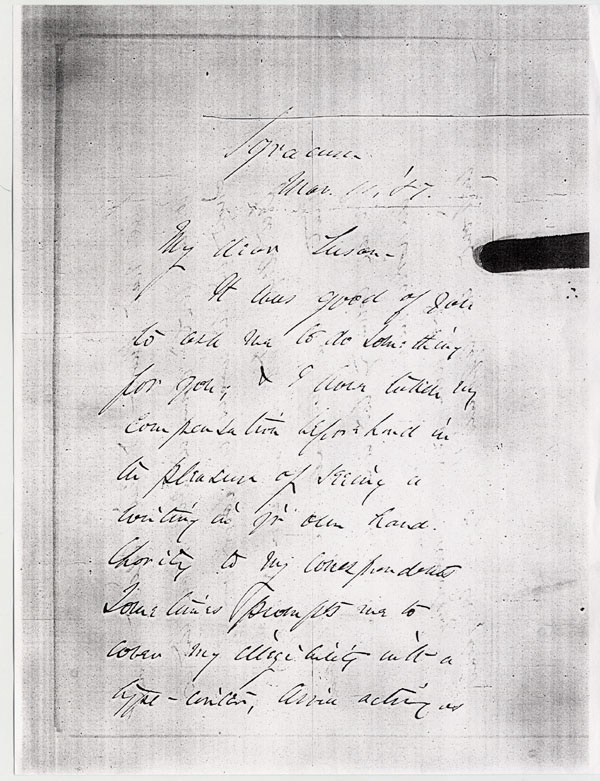 Syracuse
Mar. '87.
My dear Susan -
It was good of you
to ask me to do something
for you, & I have taken my
compensation beforehand in
the pleasure of seeing a
writing in yr own hand.
Charity to my correspondents
Sometimes prompts me to
cover my illegibility with a
type-writer, acting as